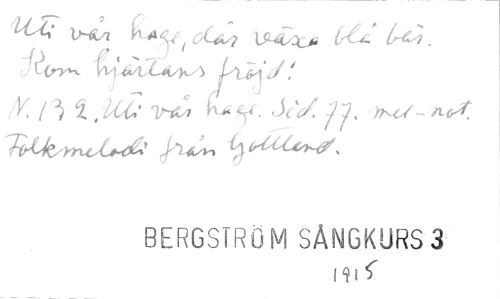 Uti vår hage, där växa blå bär.
Kom hjärtans fröjd!
N. 132. Uti vår hage. Sid. 77. mel-not.
Folkmelodi från Gottland.
BERGSTRÖM SÅNGKURS 3
1915